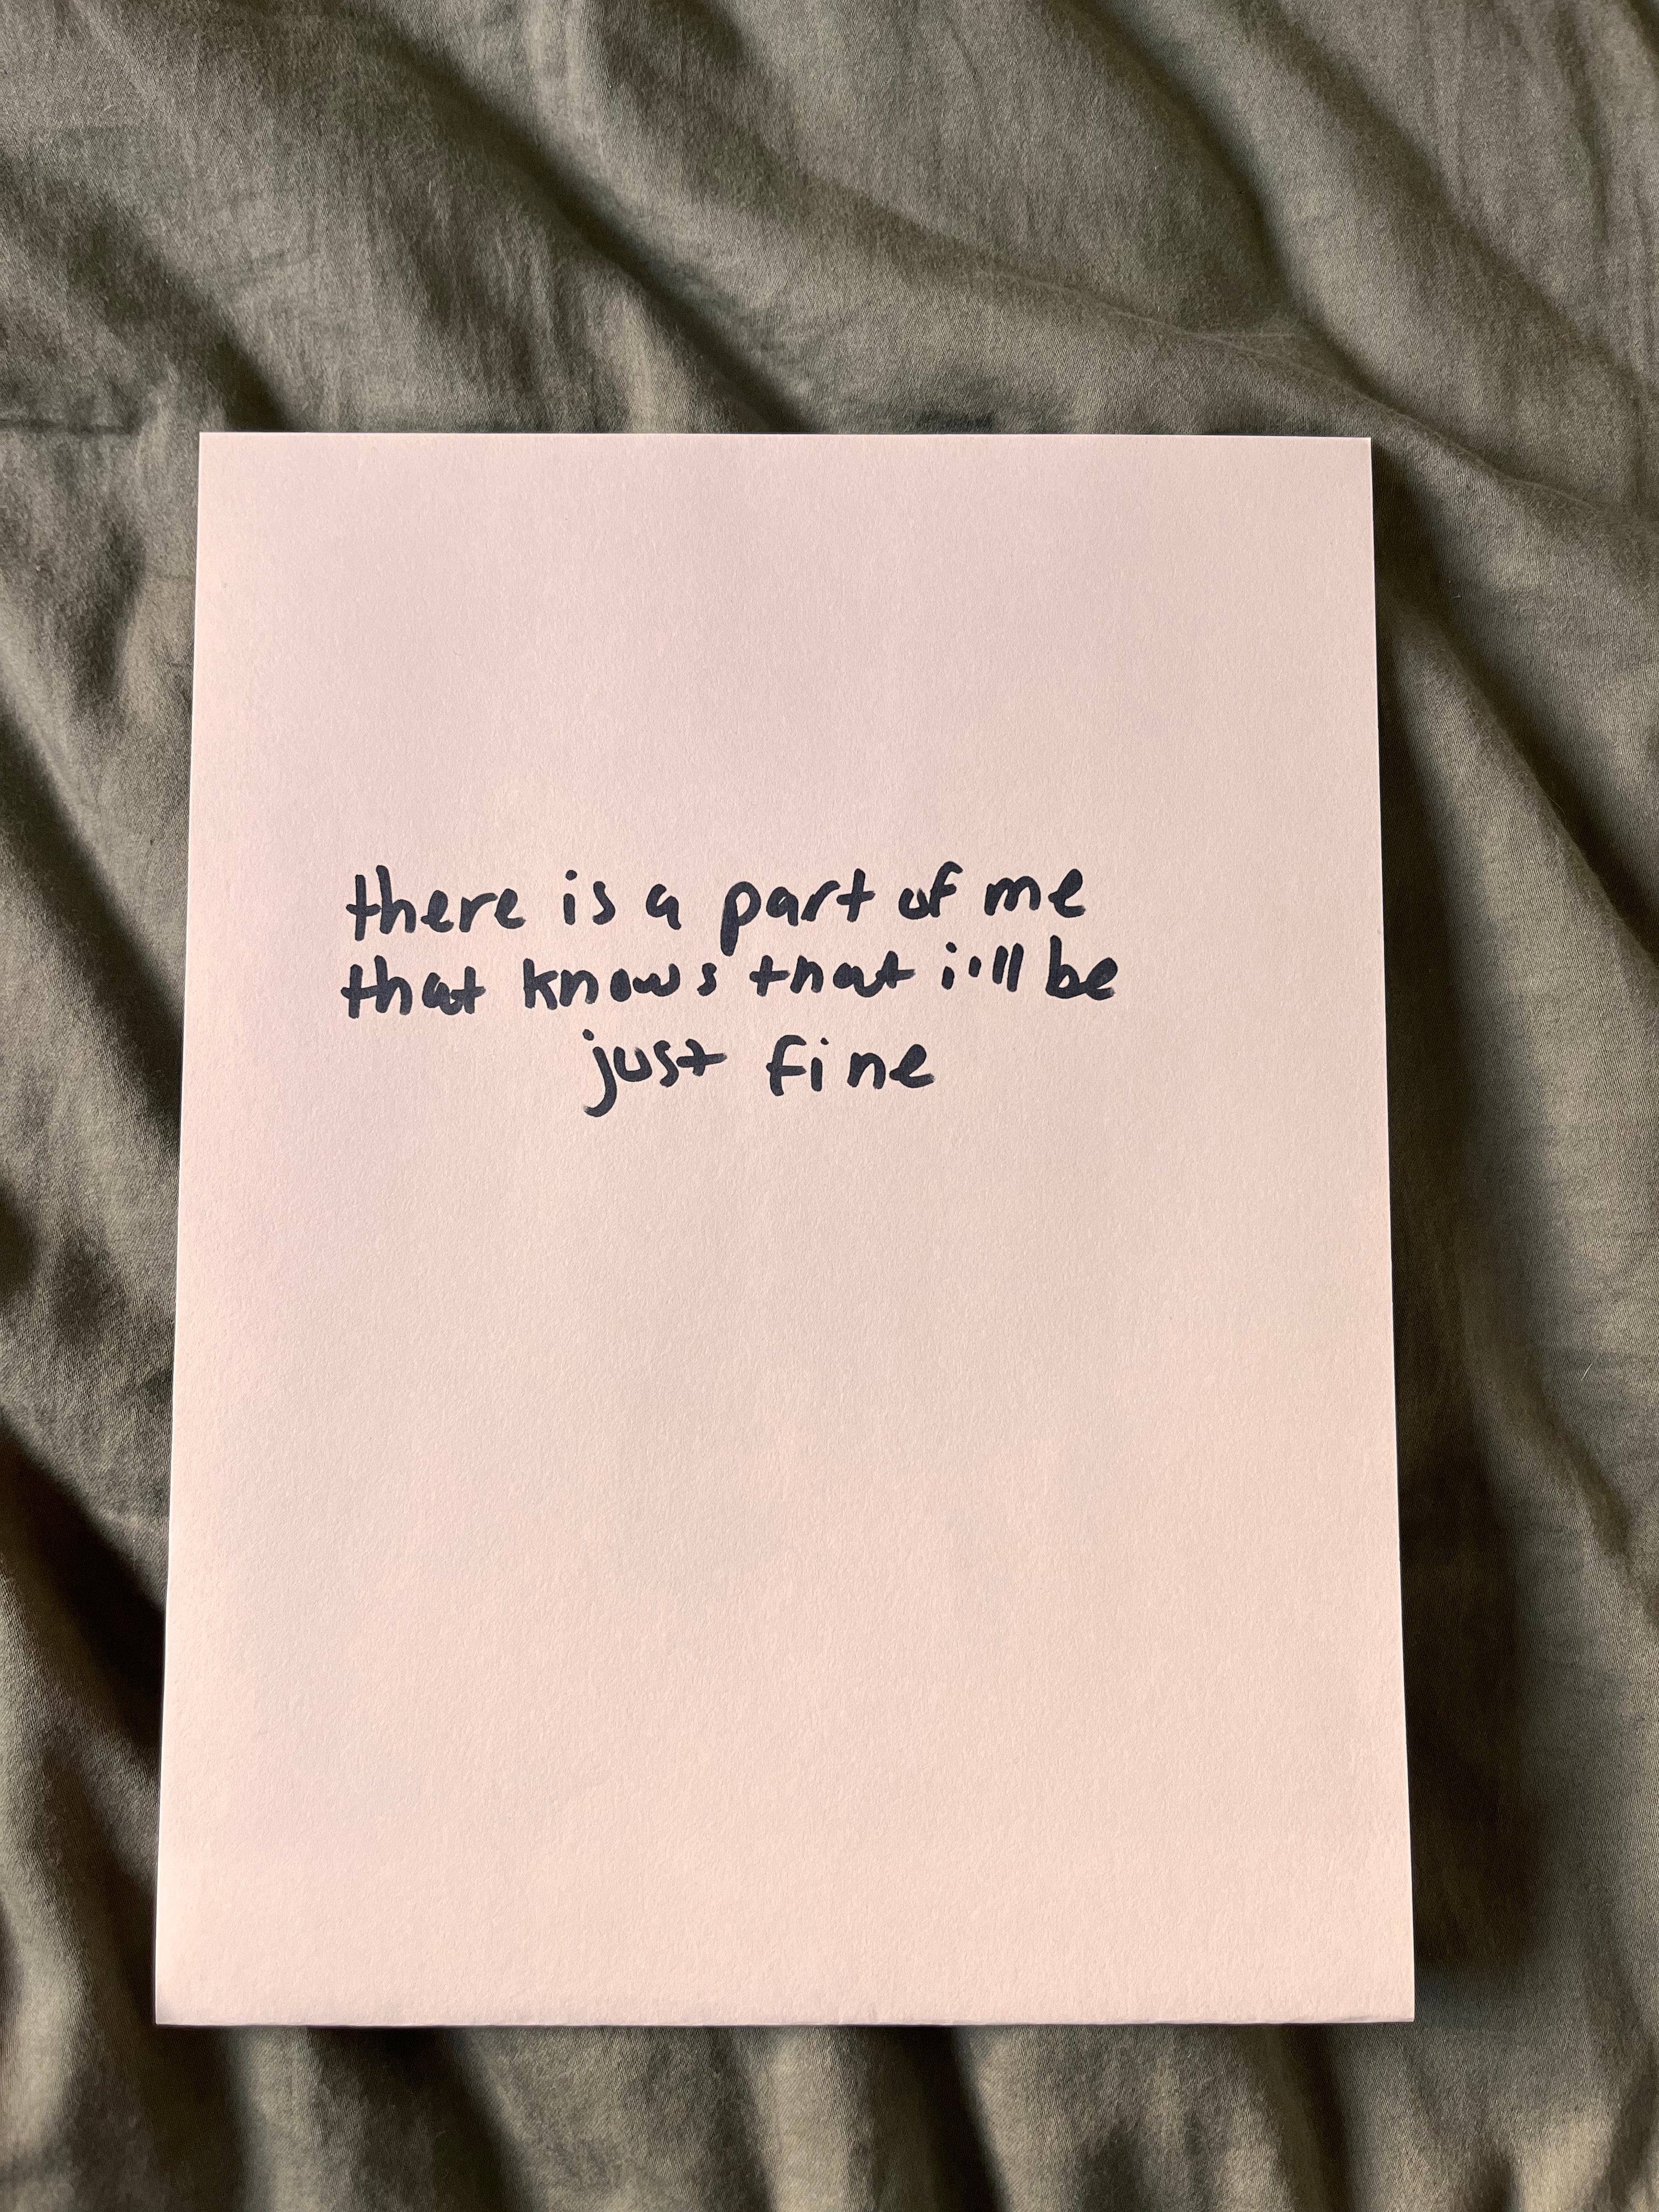 there is a part of me
that knows that i'll be
just fine